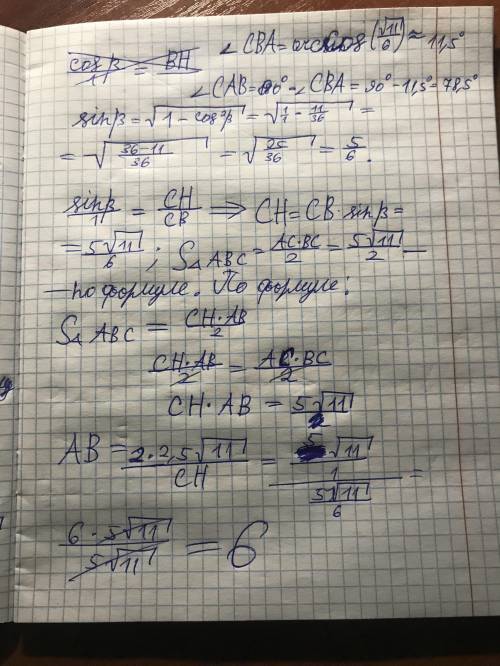 ∠CBA = arccos(√11/6) ≈ 11,5°
cosβ/1 = BH
∠CAB = 90° - ∠CBA = 90° - 11,5° = 78,5°
sinβ = √(1 - cos²β) = √(1/1 - 11/36) =
= √((36-11)/36) = √(25/36) = 5/6.
sinβ/1 = CH/CB ⟹ CH = CB · sinβ =
= 5√11/6 ; S△ABC = AC·BC/2 = 5√11/2 —
— по формуле. По формуле:
S△ABC = CH·AB/2
CH·AB/2 = AC·BC/2
CH · AB = 5√11
AB = 2·2,5√11/CH = (5√11/1)/(5√11/6) =
6·5√11/5√11 = 6